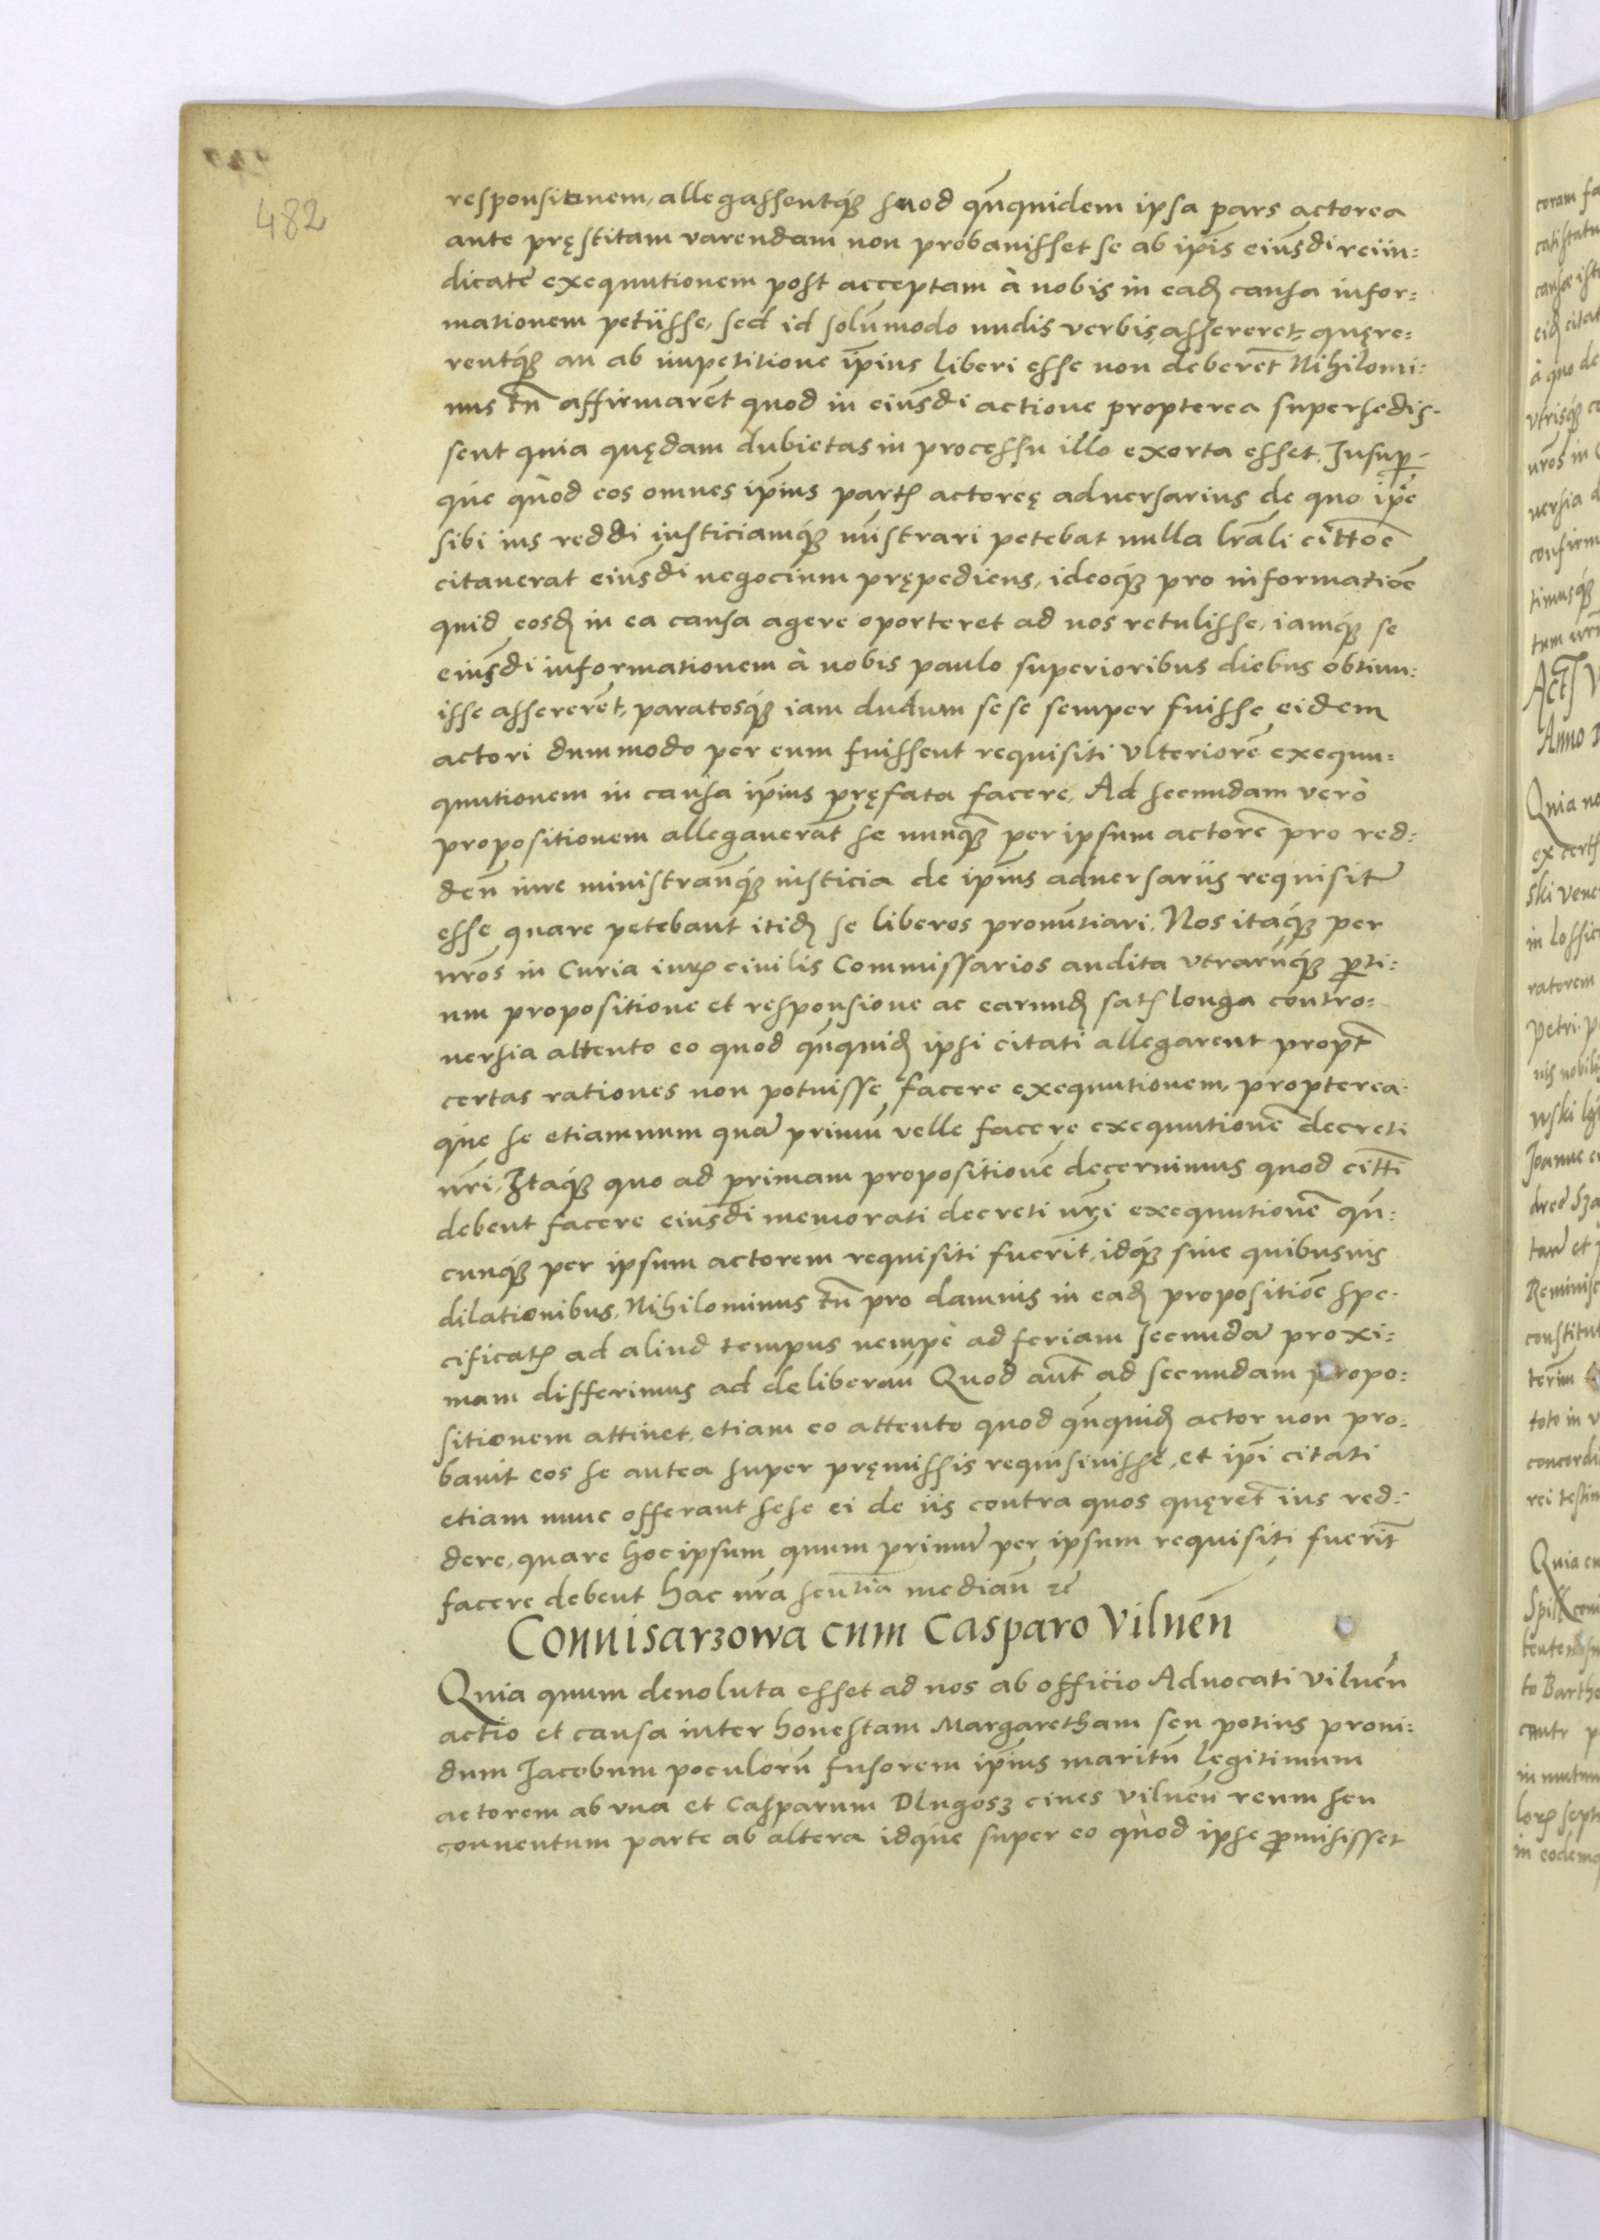 482
responsionem, allegassentq́ȝ quod qn̄quidem ipsa pars actorea
ante pręstitam varendam non probauisset se ab ip̄is eiusdi reiiu=
dicatę exequutionem post acceptam à nobis in eadȝ causa infor=
mationem petijsse, sed id solummodo nudis verbis assereret, quęre=
rentq́ȝ an ab impetitione ip̄ius liberi esse non deberēt Nihilomi=
nus tn̄ affirmarēt quod in eiusdi actione propterea supersedis-
sent quia quędam dubietas in processu illo exorta esset. Insup̱=
que quòd eos omnes ip̄ius partȩ actoreę aduersarius de quo ip̄e
sibi ius reddi iusticiamq́ȝ mīstrari petebat nulla lr̄ali cittōe
citauerat eiusdi negocium prępediens, ideoq́ȝ pro informatiōe
quid eosdȝ in ea causa agere oporteret ad nos retulisse, iamq́ȝ se
eiusdi informationem à nobis paulo superioribus diebus obtinu=
isse assererēt, paratosq́ȝ iam dudum sese semper fuisse eidem
actori dummodo per eum fuissent requisiti vlteriorē exequu=
quutionem in causa ip̄ius pręfata facere. Ad secundam verò
propositionem allegauerāt se nunq̄ȝ per ipsum actorē pro red=
den̄ iure ministranq́ȝ iusticia de ip̄ius aduersarijs requisitū
esse quare petebant itidȝ se liberos pronūtiari. Nos itaq́ȝ per
nr̄os in Curia iurȩ ciuilis Commissarios audita vtrarūq́ȝ p̱ti=
um propositione et responsione ac earundȝ satȩ longa contro=
uersia attento eo quod qn̄quidȝ ipsi citati allegarent propt̄
certas rationes non potuisse facere exequutionem, propterea=
que se etiamnum quā primū velle facere exequutionē decreti
nr̄i, Itaq́ȝ quo ad primam propositionē decernimus quod citt̄i
debent facere eiusdi memorati decreti nr̄i exequutionē qn̄=
cunq́ȝ per ipsum actorem requisiti fuerīt, idq́ȝ sine quibusuis
dilationibus. Nihilominus tn̄ pro damnis in eadȝ propositiōe spe=
cificatȩ ad aliud tempus nempè ad feriam secundā proxi=
mam differimus ad deliberan̄ Quod aūt ad secundam propo=
sitionem attinet, etiam eo attento quod qn̄quidȝ actor non pro=
bauit eos se antea super pręmissis requisiuisse, et ip̄i citati
etiam nunc offerant sese ei de ijs contra quos quęrēt ius red=
dere, quare hoc ipsum quum primū per ipsum requisiti fuerīt
facere debent hac nr̄a sentētia median̄ ꝛc̄
Connisarzowa cum Casparo Vilnen̄
Quia quum deuoluta esset ad nos ab officio Aduocati Vilnen̄
actio et causa inter honestam Margaretham seu potius proui=
dum Jacobum poculorū fusorem ip̄ius maritū legitimum
actorem ab vna et Casparum Dlugosz ciues Vilnen̄ reum seu
conuentum parte ab altera idque super eo quòd ipse p̱misisset